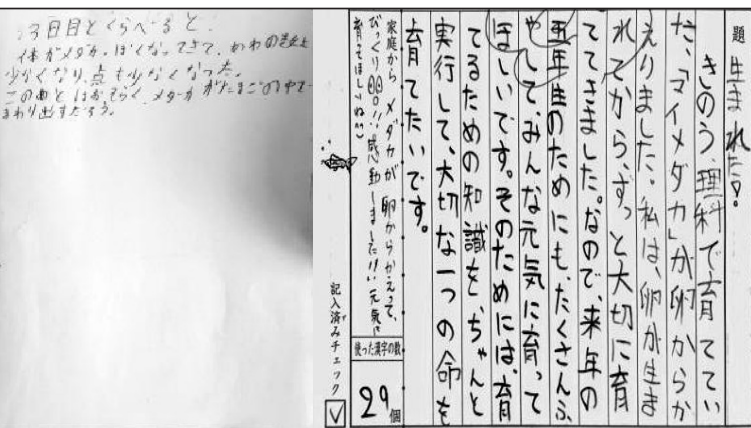 3日目とくらべると、
体がメダカっぽくなってきて、
少なくなり、点も少なくなった。
このあとはおそらく、メダカがたまごの中で
まわり出すだろう。
題 生まれた!
きのう、理科で育ててい
た、「マイメダカ」が卵からか
えりました。私は、卵が生ま
れてから、ずっと大切に育
ててきました。なので、来年の
五年生のためにも、たくさんふ
やして、みんな元気に育って
ほしいです。そのためには、育
てるための知識を、ちゃんと
実行して、大切な一つの命を
育てたいです。
家庭から メダカが 卵からかえって、
びっくり!!感動しました!!元気に
育ってほしいね
使った漢字の数
29個
記入済みチェック